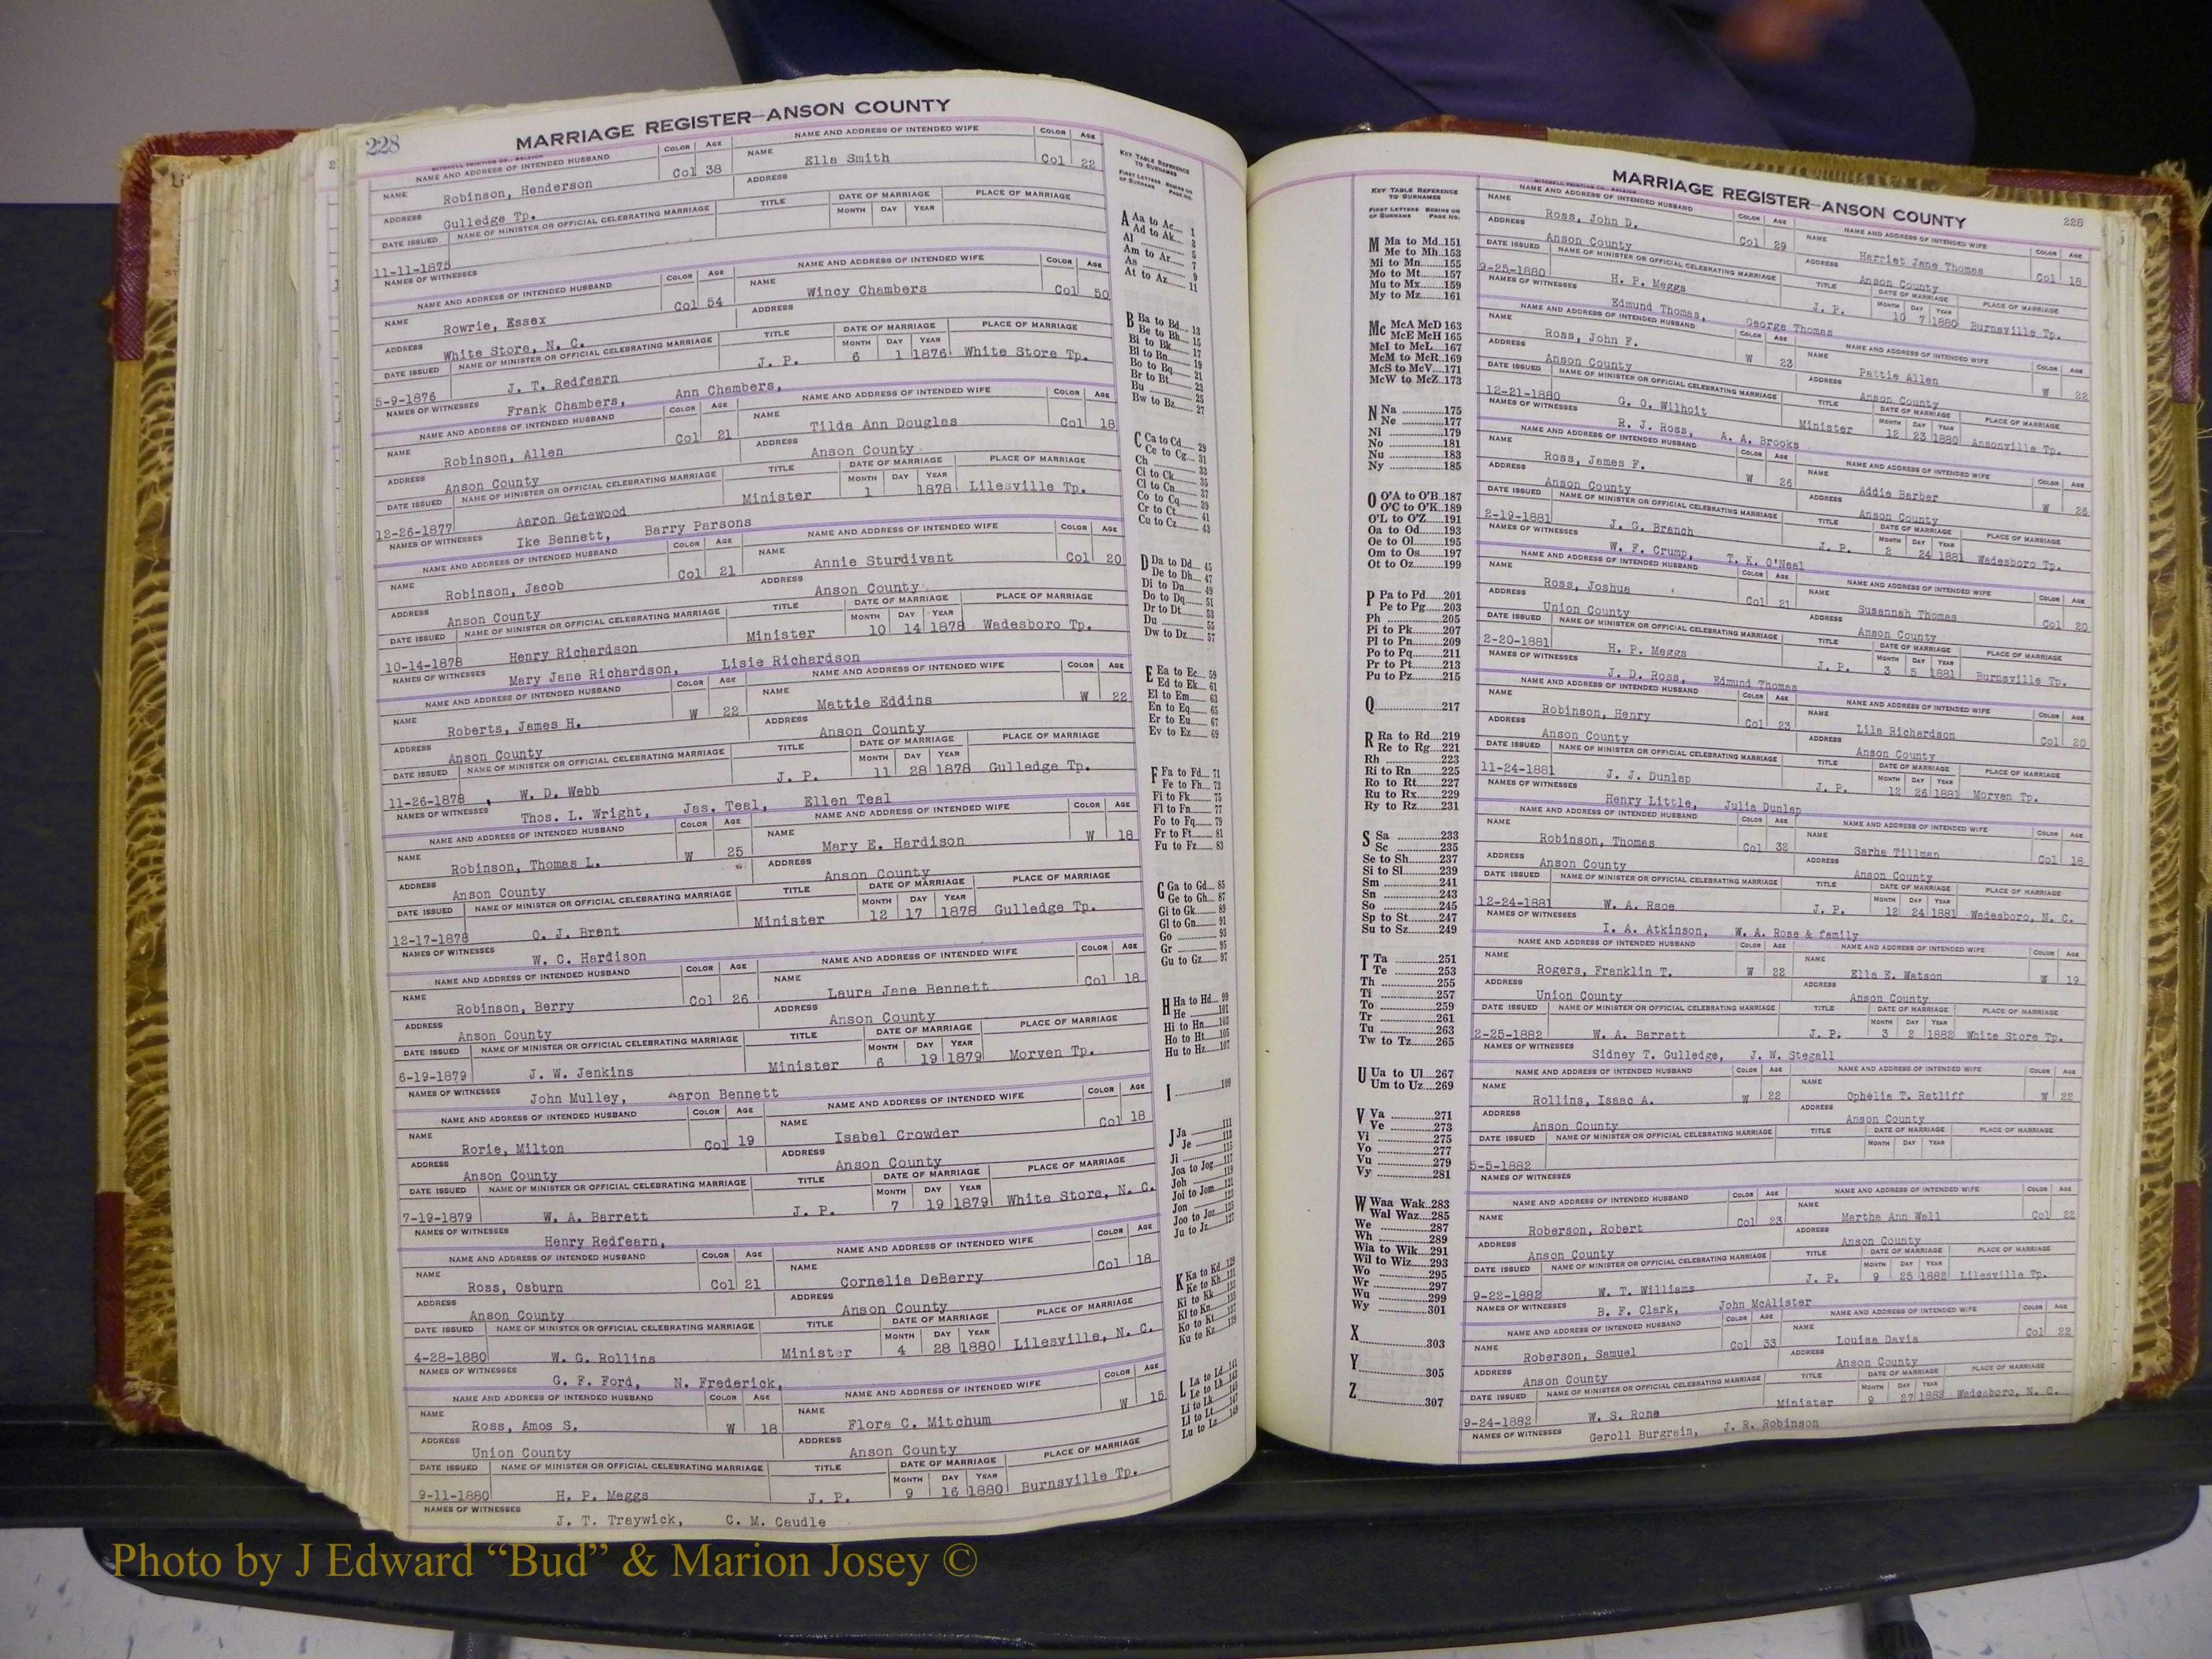 228
MARRIAGE REGISTER—ANSON COUNTY
MITCHELL PRINTING CO., RALEIGH
NAME AND ADDRESS OF INTENDED HUSBAND COLOR AGE NAME AND ADDRESS OF INTENDED WIFE COLOR AGE
NAME Robinson, Henderson Col 38 NAME Ella Smith Col 22
ADDRESS Gulledge Tp. ADDRESS
DATE ISSUED NAME OF MINISTER OR OFFICIAL CELEBRATING MARRIAGE TITLE DATE OF MARRIAGE PLACE OF MARRIAGE
MONTH DAY YEAR
11-11-1875
NAMES OF WITNESSES
NAME AND ADDRESS OF INTENDED HUSBAND COLOR AGE NAME AND ADDRESS OF INTENDED WIFE COLOR AGE
NAME Rowrie, Essex Col 54 NAME Wincy Chambers Col 50
ADDRESS White Store, N. C. ADDRESS
DATE ISSUED NAME OF MINISTER OR OFFICIAL CELEBRATING MARRIAGE TITLE DATE OF MARRIAGE PLACE OF MARRIAGE
MONTH DAY YEAR
5-9-1876 J. T. Redfearn J. P. 6 1 1876 White Store Tp.
NAMES OF WITNESSES Frank Chambers, Ann Chambers,
NAME AND ADDRESS OF INTENDED HUSBAND COLOR AGE NAME AND ADDRESS OF INTENDED WIFE COLOR AGE
NAME Robinson, Allen Col 21 NAME Tilda Ann Douglas Col 18
ADDRESS Anson County ADDRESS Anson County
DATE ISSUED NAME OF MINISTER OR OFFICIAL CELEBRATING MARRIAGE TITLE DATE OF MARRIAGE PLACE OF MARRIAGE
MONTH DAY YEAR
12-26-1877 Aaron Gatewood Minister 1 1878 Lilesville Tp.
NAMES OF WITNESSES Ike Bennett, Barry Parsons
NAME AND ADDRESS OF INTENDED HUSBAND COLOR AGE NAME AND ADDRESS OF INTENDED WIFE COLOR AGE
NAME Robinson, Jacob Col 21 NAME Annie Sturdivant Col 20
ADDRESS Anson County ADDRESS Anson County
DATE ISSUED NAME OF MINISTER OR OFFICIAL CELEBRATING MARRIAGE TITLE DATE OF MARRIAGE PLACE OF MARRIAGE
MONTH DAY YEAR
10-14-1878 Henry Richardson Minister 10 14 1878 Wadesboro Tp.
NAMES OF WITNESSES Mary Jane Richardson, Lisie Richardson
NAME AND ADDRESS OF INTENDED HUSBAND COLOR AGE NAME AND ADDRESS OF INTENDED WIFE COLOR AGE
NAME Roberts, James H. W 22 NAME Mattie Eddins W 22
ADDRESS Anson County ADDRESS Anson County
DATE ISSUED NAME OF MINISTER OR OFFICIAL CELEBRATING MARRIAGE TITLE DATE OF MARRIAGE PLACE OF MARRIAGE
MONTH DAY YEAR
11-26-1878 W. D. Webb J. P. 11 28 1878 Gulledge Tp.
NAMES OF WITNESSES Thos. L. Wright, Jas. Teal, Ellen Teal
NAME AND ADDRESS OF INTENDED HUSBAND COLOR AGE NAME AND ADDRESS OF INTENDED WIFE COLOR AGE
NAME Robinson, Thomas L. W 25 NAME Mary E. Hardison W 18
ADDRESS Anson County ADDRESS Anson County
DATE ISSUED NAME OF MINISTER OR OFFICIAL CELEBRATING MARRIAGE TITLE DATE OF MARRIAGE PLACE OF MARRIAGE
MONTH DAY YEAR
12-17-1878 O. J. Brent Minister 12 17 1878 Gulledge Tp.
NAMES OF WITNESSES W. C. Hardison
NAME AND ADDRESS OF INTENDED HUSBAND COLOR AGE NAME AND ADDRESS OF INTENDED WIFE COLOR AGE
NAME Robinson, Berry Col 26 NAME Laura Jane Bennett Col 18
ADDRESS Anson County ADDRESS Anson County
DATE ISSUED NAME OF MINISTER OR OFFICIAL CELEBRATING MARRIAGE TITLE DATE OF MARRIAGE PLACE OF MARRIAGE
MONTH DAY YEAR
6-19-1879 J. W. Jenkins Minister 6 19 1879 Morven Tp.
NAMES OF WITNESSES John Mulley, Aaron Bennett
NAME AND ADDRESS OF INTENDED HUSBAND COLOR AGE NAME AND ADDRESS OF INTENDED WIFE COLOR AGE
NAME Rorie, Milton Col 19 NAME Isabel Crowder Col 18
ADDRESS Anson County ADDRESS Anson County
DATE ISSUED NAME OF MINISTER OR OFFICIAL CELEBRATING MARRIAGE TITLE DATE OF MARRIAGE PLACE OF MARRIAGE
MONTH DAY YEAR
7-19-1879 W. A. Barrett J. P. 7 19 1879 White Store, N. C.
NAMES OF WITNESSES Henry Redfearn,
NAME AND ADDRESS OF INTENDED HUSBAND COLOR AGE NAME AND ADDRESS OF INTENDED WIFE COLOR AGE
NAME Ross, Osburn Col 21 NAME Cornelia DeBerry Col 18
ADDRESS Anson County ADDRESS Anson County
DATE ISSUED NAME OF MINISTER OR OFFICIAL CELEBRATING MARRIAGE TITLE DATE OF MARRIAGE PLACE OF MARRIAGE
MONTH DAY YEAR
4-28-1880 W. G. Rollins Minister 4 28 1880 Lilesville, N. C.
NAMES OF WITNESSES G. F. Ford, N. Frederick,
NAME AND ADDRESS OF INTENDED HUSBAND COLOR AGE NAME AND ADDRESS OF INTENDED WIFE COLOR AGE
NAME Ross, Amos S. W 18 NAME Flora C. Mitchum W 15
ADDRESS Union County ADDRESS Anson County
DATE ISSUED NAME OF MINISTER OR OFFICIAL CELEBRATING MARRIAGE TITLE DATE OF MARRIAGE PLACE OF MARRIAGE
MONTH DAY YEAR
9-11-1880 H. P. Meggs J. P. 9 16 1880 Burnsville Tp.
NAMES OF WITNESSES J. T. Traywick, C. M. Caudle
KEY TABLE REFERENCE
TO SURNAMES
FIRST LETTERS BEGINS ON
OF SURNAME PAGE NO.
A Aa to Ac 1
Ad to Ak 3
Al 5
Am to Ar 7
As 9
At to Az 11
B Ba to Bd 13
Be to Bh 15
Bi to Bk 17
Bl to Bn 19
Bo to Bq 21
Br to Bt 23
Bu 25
Bw to Bz 27
C Ca to Cd 29
Ce to Cg 31
Ch 33
Ci to Ck 35
Cl to Cn 37
Co to Cq 39
Cr to Ct 41
Cu to Cz 43
D Da to Dd 45
De to Dh 47
Di to Dn 49
Do to Dq 51
Dr to Dt 53
Du 55
Dw to Dz 57
E Ea to Ec 59
Ed to Ek 61
El to Em 63
En to Eq 65
Er to Eu 67
Ev to Ez 69
F Fa to Fd 71
Fe to Fh 73
Fi to Fk 75
Fl to Fn 77
Fo to Fq 79
Fr to Ft 81
Fu to Fz 83
G Ga to Gd 85
Ge to Gh 87
Gi to Gk 89
Gl to Gn 91
Go 93
Gr 95
Gu to Gz 97
H Ha to Hd 99
He 101
Hi to Hn 103
Ho to Ht 105
Hu to Hz 107
I 109
J Ja 111
Je 113
Ji 115
Joa to Jog 117
Joh 119
Joi to Jom 121
Jon
Joo to Joz 125
Ju to Jz 127
K Ka to Kd 129
Ke to Kh
Ki to Kk
Kl to Kn
Ko to Kt
Ku to Kz
L La to Ld 141
Le to Lh 143
Li to Lk
Ll to Lt
Lu to Lz
KEY TABLE REFERENCE
TO SURNAMES
FIRST LETTERS BEGINS ON
OF SURNAME PAGE NO.
M Ma to Md 151
Me to Mh 153
Mi to Mn 155
Mo to Mt 157
Mu to Mx 159
My to Mz 161
Mc McA McD 163
McE McH 165
McI to McL 167
McM to McR 169
McS to McV 171
McW to McZ 173
N Na 175
Ne 177
Ni 179
No 181
Nu 183
Ny 185
O O'A to O'B 187
O'C to O'K 189
O'L to O'Z 191
Oa to Od 193
Oe to Ol 195
Om to Os 197
Ot to Oz 199
P Pa to Pd 201
Pe to Pg 203
Ph 205
Pi to Pk 207
Pl to Pn 209
Po to Pq 211
Pr to Pt 213
Pu to Pz 215
Q 217
R Ra to Rd 219
Re to Rg 221
Rh 223
Ri to Rn 225
Ro to Rt 227
Ru to Rx 229
Ry to Rz 231
S Sa 233
Sc 235
Se to Sh 237
Si to Sl 239
Sm 241
Sn 243
So 245
Sp to St 247
Su to Sz 249
T Ta 251
Te 253
Th 255
Ti 257
To 259
Tr 261
Tu 263
Tw to Tz 265
U Ua to Ul 267
Um to Uz 269
V Va 271
Ve 273
Vi 275
Vo 277
Vu 279
Vy 281
W Waa Wak 283
Wal Waz 285
We 287
Wh 289
Wia to Wik 291
Wil to Wiz 293
Wo 295
Wr 297
Wu 299
Wy 301
X 303
Y 305
Z 307
MARRIAGE REGISTER—ANSON COUNTY 228
MITCHELL PRINTING CO., RALEIGH
NAME AND ADDRESS OF INTENDED HUSBAND COLOR AGE NAME AND ADDRESS OF INTENDED WIFE COLOR AGE
NAME Ross, John D. Col 29 NAME Harriet Jane Thomas Col 18
ADDRESS Anson County ADDRESS Anson County
DATE ISSUED NAME OF MINISTER OR OFFICIAL CELEBRATING MARRIAGE TITLE DATE OF MARRIAGE PLACE OF MARRIAGE
MONTH DAY YEAR
9-25-1880 H. P. Meggs J. P. 10 7 1880 Burnsville Tp.
NAMES OF WITNESSES Edmund Thomas, George Thomas
NAME AND ADDRESS OF INTENDED HUSBAND COLOR AGE NAME AND ADDRESS OF INTENDED WIFE COLOR AGE
NAME Ross, John F. W 23 NAME Pattie Allen W 22
ADDRESS Anson County ADDRESS Anson County
DATE ISSUED NAME OF MINISTER OR OFFICIAL CELEBRATING MARRIAGE TITLE DATE OF MARRIAGE PLACE OF MARRIAGE
MONTH DAY YEAR
12-21-1880 G. O. Wilhoit Minister 12 23 1880 Ansonville Tp.
NAMES OF WITNESSES R. J. Ross, A. A. Brooks
NAME AND ADDRESS OF INTENDED HUSBAND COLOR AGE NAME AND ADDRESS OF INTENDED WIFE COLOR AGE
NAME Ross, James F. W 26 NAME Addie Barber W 26
ADDRESS Anson County ADDRESS Anson County
DATE ISSUED NAME OF MINISTER OR OFFICIAL CELEBRATING MARRIAGE TITLE DATE OF MARRIAGE PLACE OF MARRIAGE
MONTH DAY YEAR
2-19-1881 J. G. Branch J. P. 2 24 1881 Wadesboro Tp.
NAMES OF WITNESSES W. F. Crump, T. K. O'Neal
NAME AND ADDRESS OF INTENDED HUSBAND COLOR AGE NAME AND ADDRESS OF INTENDED WIFE COLOR AGE
NAME Ross, Joshua Col 21 NAME Susannah Thomas Col 20
ADDRESS Union County ADDRESS Anson County
DATE ISSUED NAME OF MINISTER OR OFFICIAL CELEBRATING MARRIAGE TITLE DATE OF MARRIAGE PLACE OF MARRIAGE
MONTH DAY YEAR
2-20-1881 H. P. Meggs J. P. 3 5 1881 Burnsville Tp.
NAMES OF WITNESSES J. D. Ross, Edmund Thomas
NAME AND ADDRESS OF INTENDED HUSBAND COLOR AGE NAME AND ADDRESS OF INTENDED WIFE COLOR AGE
NAME Robinson, Henry Col 23 NAME Lila Richardson Col 20
ADDRESS Anson County ADDRESS Anson County
DATE ISSUED NAME OF MINISTER OR OFFICIAL CELEBRATING MARRIAGE TITLE DATE OF MARRIAGE PLACE OF MARRIAGE
MONTH DAY YEAR
11-24-1881 J. J. Dunlap J. P. 12 26 1881 Morven Tp.
NAMES OF WITNESSES Henry Little, Julia Dunlap
NAME AND ADDRESS OF INTENDED HUSBAND COLOR AGE NAME AND ADDRESS OF INTENDED WIFE COLOR AGE
NAME Robinson, Thomas Col 32 NAME Sarha Tillman Col 18
ADDRESS Anson County ADDRESS Anson County
DATE ISSUED NAME OF MINISTER OR OFFICIAL CELEBRATING MARRIAGE TITLE DATE OF MARRIAGE PLACE OF MARRIAGE
MONTH DAY YEAR
12-24-1881 W. A. Rsoe J. P. 12 24 1881 Wadesboro, N. C.
NAMES OF WITNESSES I. A. Atkinson, W. A. Rose & family
NAME AND ADDRESS OF INTENDED HUSBAND COLOR AGE NAME AND ADDRESS OF INTENDED WIFE COLOR AGE
NAME Rogers, Franklin T. W 22 NAME Ella E. Watson W 19
ADDRESS Union County ADDRESS Anson County
DATE ISSUED NAME OF MINISTER OR OFFICIAL CELEBRATING MARRIAGE TITLE DATE OF MARRIAGE PLACE OF MARRIAGE
MONTH DAY YEAR
2-25-1882 W. A. Barrett J. P. 3 2 1882 White Store Tp.
NAMES OF WITNESSES Sidney T. Gulledge, J. W. Stegall
NAME AND ADDRESS OF INTENDED HUSBAND COLOR AGE NAME AND ADDRESS OF INTENDED WIFE COLOR AGE
NAME Rollins, Isaac A. W 22 NAME Ophelia T. Ratliff W 22
ADDRESS Anson County ADDRESS Anson County
DATE ISSUED NAME OF MINISTER OR OFFICIAL CELEBRATING MARRIAGE TITLE DATE OF MARRIAGE PLACE OF MARRIAGE
MONTH DAY YEAR
5-5-1882
NAMES OF WITNESSES
NAME AND ADDRESS OF INTENDED HUSBAND COLOR AGE NAME AND ADDRESS OF INTENDED WIFE COLOR AGE
NAME Roberson, Robert Col 23 NAME Martha Ann Wall Col 22
ADDRESS Anson County ADDRESS Anson County
DATE ISSUED NAME OF MINISTER OR OFFICIAL CELEBRATING MARRIAGE TITLE DATE OF MARRIAGE PLACE OF MARRIAGE
MONTH DAY YEAR
9-22-1882 W. T. Williams J. P. 9 25 1882 Lilesville Tp.
NAMES OF WITNESSES B. F. Clark, John McAlister
NAME AND ADDRESS OF INTENDED HUSBAND COLOR AGE NAME AND ADDRESS OF INTENDED WIFE COLOR AGE
NAME Roberson, Samuel Col 33 NAME Louisa Davis Col 22
ADDRESS Anson County ADDRESS Anson County
DATE ISSUED NAME OF MINISTER OR OFFICIAL CELEBRATING MARRIAGE TITLE DATE OF MARRIAGE PLACE OF MARRIAGE
MONTH DAY YEAR
9-24-1882 W. S. Rone Minister 9 27 1882 Wadesboro, N. C.
NAMES OF WITNESSES Geroll Burgrain, J. R. Robinson
Photo by J Edward “Bud” & Marion Josey ©